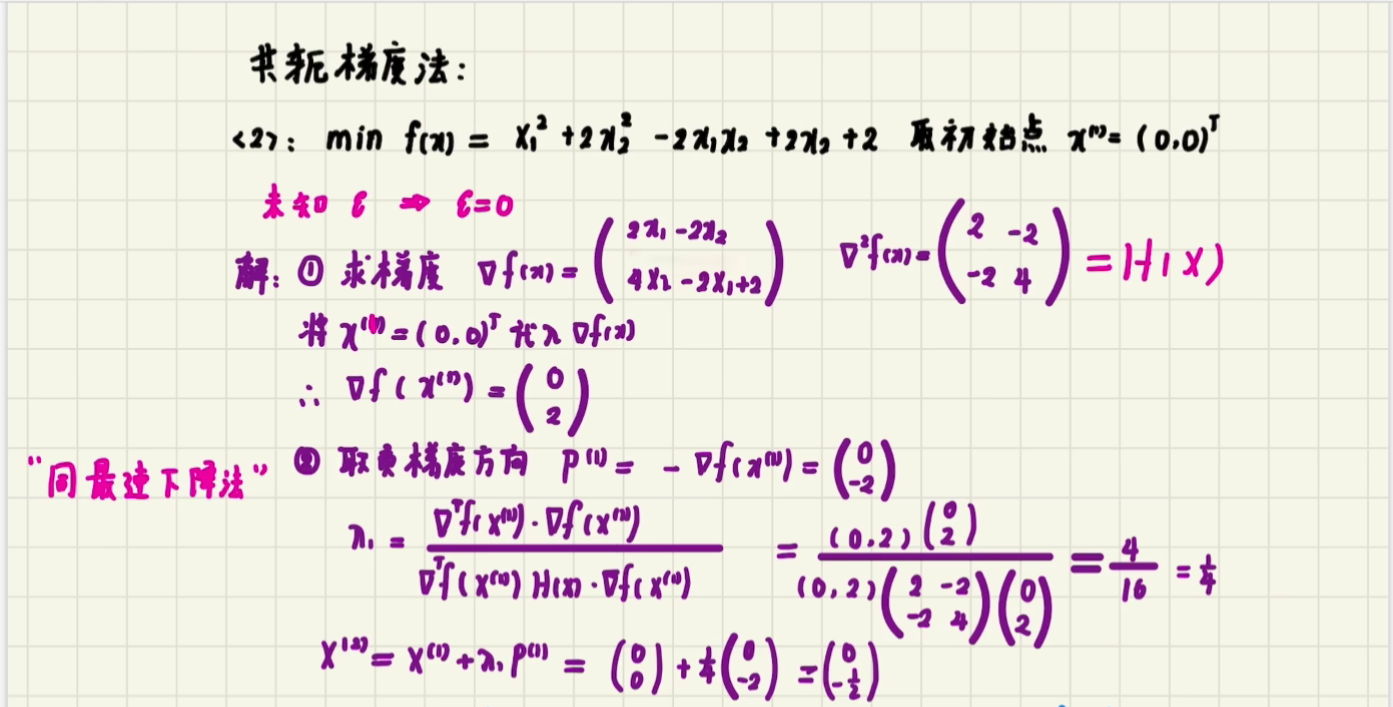 共轭梯度法:
<2>: min f(x) = x₁² + 2x₂² - 2x₁x₂ + 2x₂ + 2 取初始点 x⁽¹⁾ = (0,0)ᵀ
未知 ε ⇒ ε=0
解: ① 求梯度 ∇f(x) = (2x₁ - 2x₂ ; 4x₂ - 2x₁ + 2) ∇²f(x) = (2 -2 ; -2 4) = H(x)
将 x⁽¹⁾ = (0,0)ᵀ 代入 ∇f(x)
∴ ∇f(x⁽¹⁾) = (0 ; 2)
"同最速下降法" ② 取负梯度方向 P⁽¹⁾ = -∇f(x⁽¹⁾) = (0 ; -2)
λ₁ = ∇ᵀf(x⁽¹⁾)·∇f(x⁽¹⁾) / ∇ᵀf(x⁽¹⁾) H(x)·∇f(x⁽¹⁾) = (0,2)(0 ; 2) / (0,2)(2 -2 ; -2 4)(0 ; 2) = 4/16 = 1/4
x⁽²⁾ = x⁽¹⁾ + λ₁P⁽¹⁾ = (0 ; 0) + 1/4 (0 ; -2) = (0 ; -1/2)